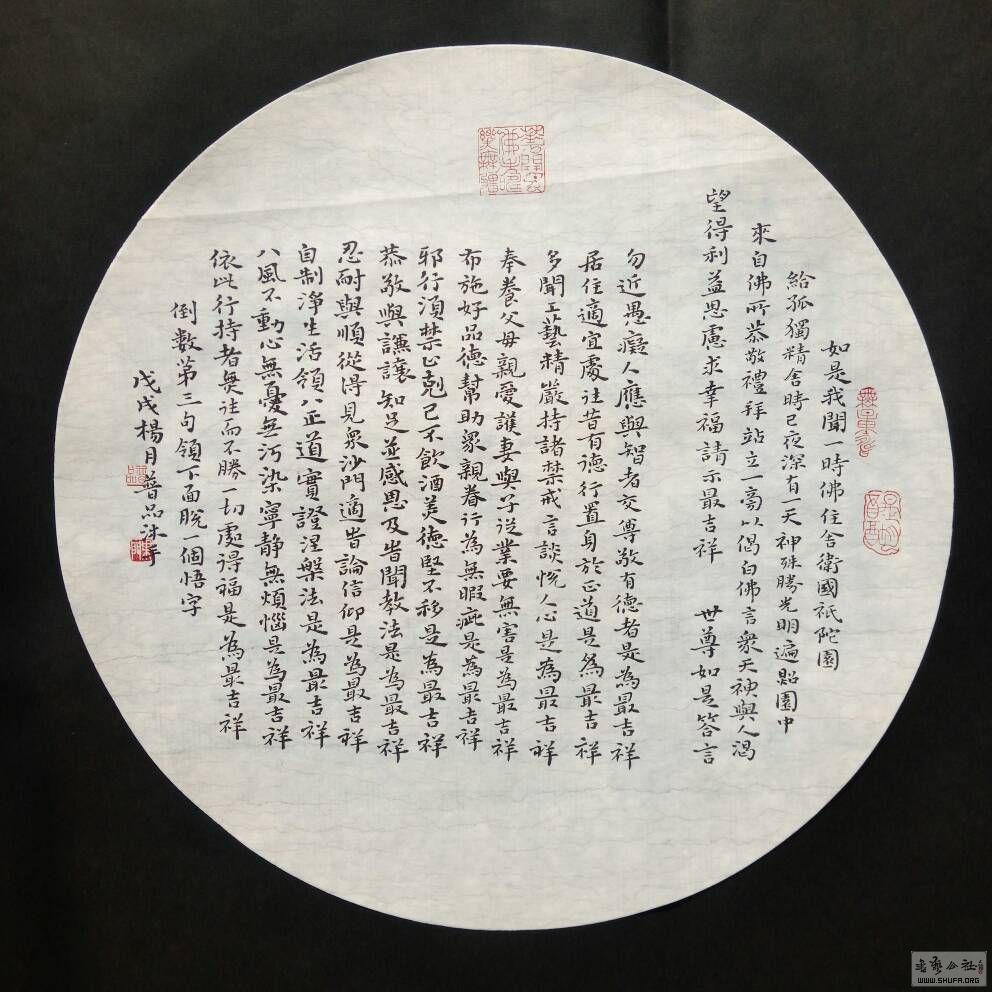 如是我聞一時佛住舍衛國祇陀園
給孤獨精舍時已夜深有一天神殊勝光明遍照園中
來自佛所恭敬禮拜站立一旁以偈白佛言衆天神與人渴
望得利益思慮求幸福請示最吉祥 世尊如是答言
勿近愚癡人應與智者交尊敬有德者是為最吉祥
居住適宜處往昔有德行置身於正道是為最吉祥
多聞工藝精嚴持諸禁戒言談悅人心是為最吉祥
奉養父母親愛護妻與子從業要無害是為最吉祥
布施好品德幫助衆親眷行為無瑕疵是為最吉祥
邪行須禁止克己不飲酒美德堅不移是為最吉祥
恭敬與謙讓知足並感恩及時聞教法是為最吉祥
忍耐與順從得見衆沙門適時論信仰是為最吉祥
自制淨生活領八正道實證涅槃法是為最吉祥
八風不動心無憂無污染寧静無煩惱是為最吉祥
依此行持者無往而不勝一切處得福是為最吉祥
倒數第三句領下面脫一個悟字
戊戌楊月普品沐手
WWW.SHUFA.ORG